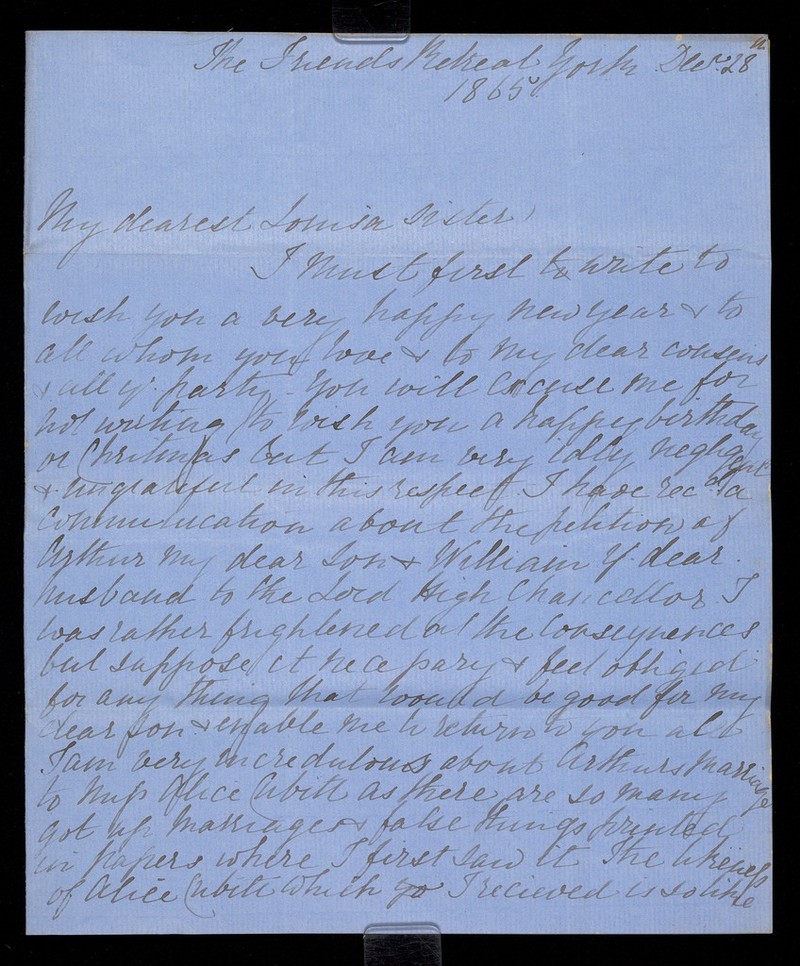 The Friends Retreat York Decr. 28th
1865
My dearest Louisa Sister,
I must first to write to
wish you a very happy new year & to
all whom you love & to my dear cousins
& all yr. party - You will excuse me for
not writing to wish you a happy birthday
or Christmas but I am very idly negligent
& ungrateful in this respect I have recd. a
communication about the petition of
Arthur my dear Son & William yr. dear
husband to the Lord High Chancellor I
was rather frightened at the Consequences
but suppose it necessary & feel obliged
for any thing that would be good for my
dear son & enable me to return to you all
I am very incredulous about Arthurs Marriage
to Miss Alice Cubitt as there are so many
got up marriages & false things printed
in papers where I first saw it The likeness
of Alice Cubitt which I recieved is so like